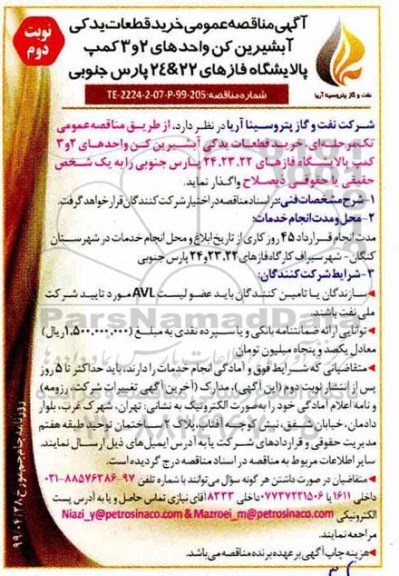 نوبت دوم
آگهی مناقصه عمومی خرید قطعات یدکی
آبشیرین کن واحدهای ۲و۳ کمپ
پالایشگاه فازهای ۲۲&۲۴ پارس جنوبی
نفت و گاز پتروسینا آریا
شماره مناقصه: TE-2224-2-07-P-99-205
شرکت نفت و گاز پتروسینا آریا در نظر دارد، از طریق مناقصه عمومی
تک مرحله ای، خرید قطعات یدکی آبشیرین کن واحدهای ۲و۳
کمپ پالایشگاه فازهای ۲۴،۲۳،۲۲ پارس جنوبی را به یک شخص
حقیقی یا حقوقی ذیصلاح واگذار نماید.
۱- شرح مشخصات فنی: در اسناد مناقصه در اختیار شرکت کنندگان قرار خواهد گرفت.
۲- محل و مدت انجام خدمات:
مدت انجام قرارداد ۴۵ روز کاری از تاریخ ابلاغ و محل انجام خدمات در شهرستان
کنگان - شهر سیراف کارگاه فازهای ۲۲،۲۳و۲۴ پارس جنوبی
۳- شرایط شرکت کنندگان:
سازندگان یا تامین کنندگان باید عضو لیست AVL مورد تایید شرکت
ملی نفت باشند.
توانایی ارائه ضمانتنامه بانکی و یا سپرده نقدی به مبلغ (۱.۵۰۰.۰۰۰.۰۰۰ ریال)
معادل یکصد و پنجاه میلیون تومان
متقاضیانی که شرایط فوق و آمادگی انجام خدمات را دارند، باید حداکثر تا ۵ روز
پس از انتشار نوبت دوم (این آگهی)، مدارک (آخرین آگهی تغییرات شرکت، رزومه)
و نامه اعلام آمادگی خود را به صورت الکترونیک به نشانی: تهران، شهرک غرب، بلوار
دادمان، خیابان شفق، نبش کوچه آفتاب، پلاک ۲، ساختمان توحید طبقه هفتم
مدیریت حقوقی و قراردادهای شرکت یا به آدرس ایمیل های ذیل ارسال نمایند.
سایر اطلاعات مربوط به مناقصه در اسناد مناقصه درج گردیده است.
متقاضیان در صورت داشتن هر گونه سؤال می توانند با شماره تلفن ۹۷-۰۲۱-۸۸۵۷۶۳۸۶
داخلی ۱۶۱۱ یا ۰۷۷۳۷۲۲۱۵۰۶ داخلی ۸۲۳۳ آقای نیازی تماس حاصل و یا به آدرس پست
الکترونیکی Niazi_y@petrosinaco.com & Mazroei_m@petrosinaco.com
مراجعه نمایند.
هزینه چاپ آگهی بر عهده برنده مناقصه می باشد.
روزنامه جام جم مورخ ۹۹/۰۶/۲۸
ParsNamadData